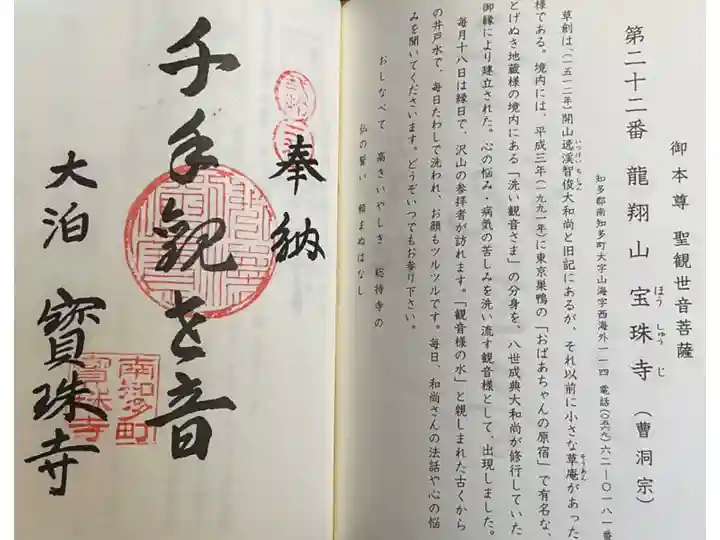 御本尊 聖観世音菩薩
第二十二番 龍翔山 宝珠寺（曹洞宗）
ほう しゅう じ
知多郡南知多町大字山海字西海外一ー四 電話（〇五六九）六二ー〇一八一番
草創は、（一五一二年）開山逸渓智俊大和尚と旧記にあるが、それ以前に小さな草庵があった
いっけいちしゅん
そうあん
様である。境内には、平成三年（一九九一年）に東京巣鴨の「おばあちゃんの原宿」で有名な、
とげぬき地蔵様の境内にある「洗い観音さま」の分身を、八世成典大和尚が修行していた
御縁により建立された。心の悩み・病気の苦しみを洗い流す観音様として、出現しました。
毎月十八日は縁日で、沢山の参拝者が訪れます。「観音様の水」と親しまれた古くから
の井戸水で、毎日たわしで洗われ、お顔もツルツルです。毎日、和尚さんの法話や心の悩
みを聞いてくださいます。どうぞいつでもお参り下さい。
おしなべて 高きいやしき 総持寺の
仏の誓い 頼まぬはなし
奉納
千手観世音
大泊 寳珠寺
南知多町
寳珠寺